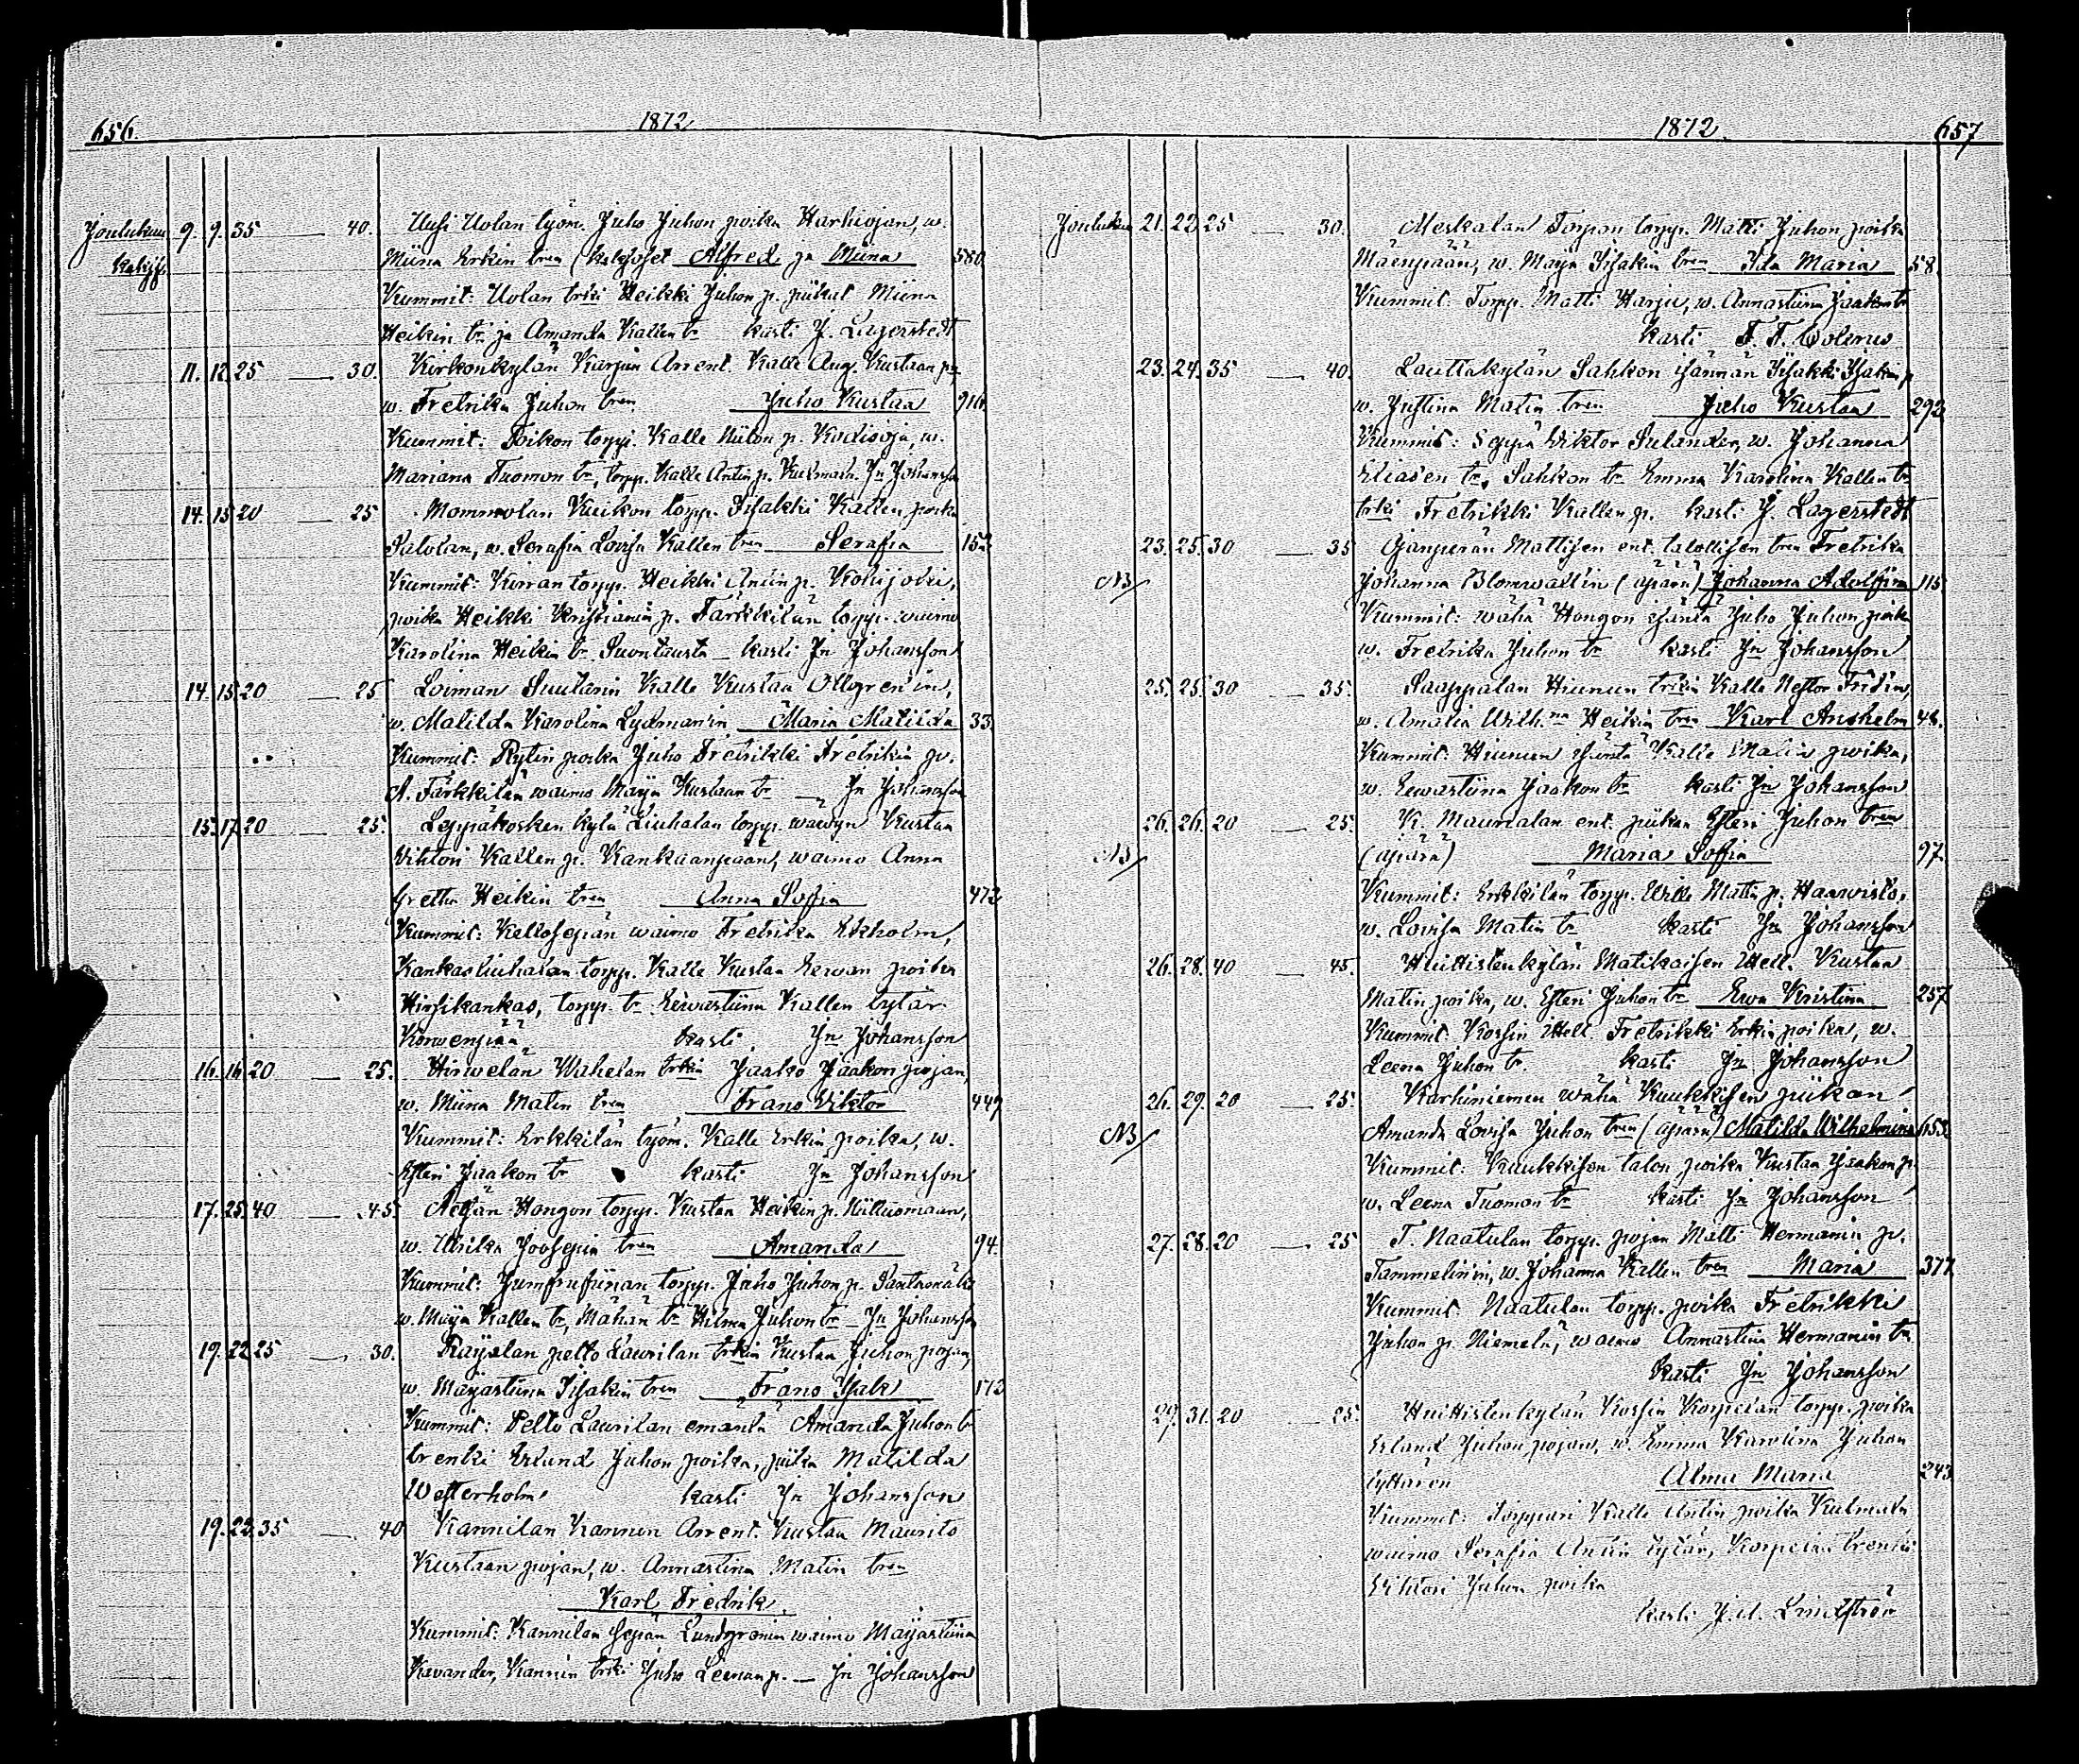 656. 1872
Joulukuu 9. 9. 35 — 40. Uusi Uolan työm. Juho Juhon poika Harhiojan, w.
Miina Erkin tren (kaksoset Alfred ja Miina 580
Kummit: Uolan trki Heikki Juhon p. piikat Miina
Heikin tr ja Amanda Kallen tr kasti J. Lagerstedt
11. 12. 25 — 30. Kirkonkylän Karjun Arrent. Kalle Aug. Kustaan p.
w. Fretrika Juhon tren Juho Kustaa 916.
Kummit: torpp. Kalle p. w.
Mariana Tuomon tr, torpp. Kalle Antin p. Kulmala. Jn Johansson
14. 15. 20 — 25 Mommolan Kuikon torpp. Isakki Kallen poika
Salolan, w. Serafia Lovisa Kallen tren Serafia 153
Kummit: torpp. Heikki Antin p. Kohijoki,
poika Heikki Kristianin p. Farkkilan torpp. waimo
Karolina Heikin tr Suontausta — kasti Jn Johansson
14. 15. 20 — 25 Loiman Suutarin Kalle Kustaa Ollgren'in,
w. Matilda Karolina Lydman'in Maria Matilda 33.
Kummit: Rytin poika Juho Fretrikki Fretrikin p.
A. Farkkilan waimo Maija Kustaan tr — Jn Johansson
15. 17. 20 — 25. Leppäkosken kylä Liuhalan torpp. Kustaa
Viktori Kallen p. Kankaanpään, waimo Anna
Gretha Heikin tren Anna Sofia 472
Kummit: Kellosepän waimo Fretrika Ekholm,
Kankasliuhalan torpp. Kalle Kustaa Eerwan poika
Hirsikankas, torpp. tr Eewastiina Kallen tytär
Korwenpää, kasti Jn Johansson
16. 16. 20 — 25. Hirwelän Wahelan trkin Jaako Jaakon pojan,
w. Miina Matin tren Frans Viktor 449
Kummit: Erkkilän työm. Kalle Erkin poika, w.
Esteri Jaakon tr kasti Jn Johansson
17. 25. 40 — 45. Aetsän Hongon torpp. Kustaa Heikin p. Nilliusmaan,
w. Ulrika Joosepin tren Amanda 94.
Kummit: torpp. Juho Juhon p.
w. Maija Kallen tr, Mahan tr Hilma Juhon tr — Jn Johansson
19. 22. 25 — 30. Raijalan pelto Laurilan trkin Kustaa Juhon pojan,
w. Maijastiina Isakin tren Frans Isak 173
Kummit: Pelto Laurilan emäntä Amanda Juhon tr
trenki Erlund Juhon poika, piika Matilda
Westerholm kasti Jn Johansson
19. 22. 35 — 40 Kannilan Kannun Arrent. Kustaa Maurits
Kustaan pojan, w. Annastina Matin tren
Karl Fredrik.
Kummit: Kannilan Sepän Lundgrenin waimo Maijastiina
Kavander, Kannin trki Juho Leenan p. — Jn Johansson
1872. 657
Joulukuu 21. 22. 25 — 30. Meskalan Torpan torpp. Matti Juhon poika
Mäenpään, w. Maija Isakin tren Ida Maria 58.
Kummit: Torpp. Matti Harju, w. Annastiina Jaakon tr
kasti F. F. Colerus
23. 24. 35 — 40. Lauttakylän Sahkon isännän Isakki Isakin p
w. Justina Matin tren Juho Kustaa 292
Kummit: Seppä Viktor Sulander, w. Johanna
Eliasen tr, Sahkon tr Emma Karolina Kallen tr
trki Fretrikki Kallen p. kasti J. Lagerstedt
23. 25. 30 — 35 Ojanperän Mattisen ent. talollisen tren Fretrika
NB Johanna Blomwallin (äpärä) Johanna Adolfina 115
Kummit: wähä Hongon isäntä Juho Juhon poika
w. Fretrika Juhon tr kasti Jn Johansson
25. 25. 30 — 35. Saappalan Hiunun trkin Kalle Nestor Fridin,
w. Amalia Wilh.na Heikin tren Karl Anshelm 48.
Kummit: Hiunun isäntä Kalle Matin poika,
w. Eewastiina Jaakon tr kasti Jn Johansson
26. 26. 20 — 25. K. Maurialan ent. piikan Esteri Juhon tren
NB (äpärä) Maria Soffia 97.
Kummit: Erkkilän torpp. Matti p. Haawisto,
w. Lovisa Matin tr kasti Jn Johansson
26. 28. 40 — 45. Huittistenkylän Matikaisen Itsell. Kustaa
Matin poika, w. Esteri Juhon tr Eewa Kristina 257
Kummit. Kossin Itsell Fretrikki Erkin poika, w.
Leena Juhon tr. kasti Jn Johansson
26. 29. 20 — 25. Karhiniemen wähä Kuukkisen piikan
NB Amanda Lovisa Juhon tren (äpärä) Matilda Wilhelmina 653
Kummit: Kuukkisen talon poika Kustaa Jaakon p.
w. Leena Tuomon tr kasti Jn Johansson
27. 28. 20 — 25 T. Naatulan torpp. pojan Matti Hermanin p.
Tammelinin, w. Johanna Kallen tren Maria 377
Kummit Naatulan torpp. poika Fretrikki
Juhon p. Niemelä, waimo Annastina Hermanin tr.
kasti Jn Johansson
29. 31. 20 — 25. Huittistenkylän Kossin Korpelan torpp. poika
Erland Juhon pojan, w. Emma Karolina Juhon
tyttären Alma Maria 243
Kummit: Torppari Kalle Antin poika Kulmala
waimo Serafia Antin tytär, Korpelan trenki
Viktori Juhon poika
kasti J. A. Lindström